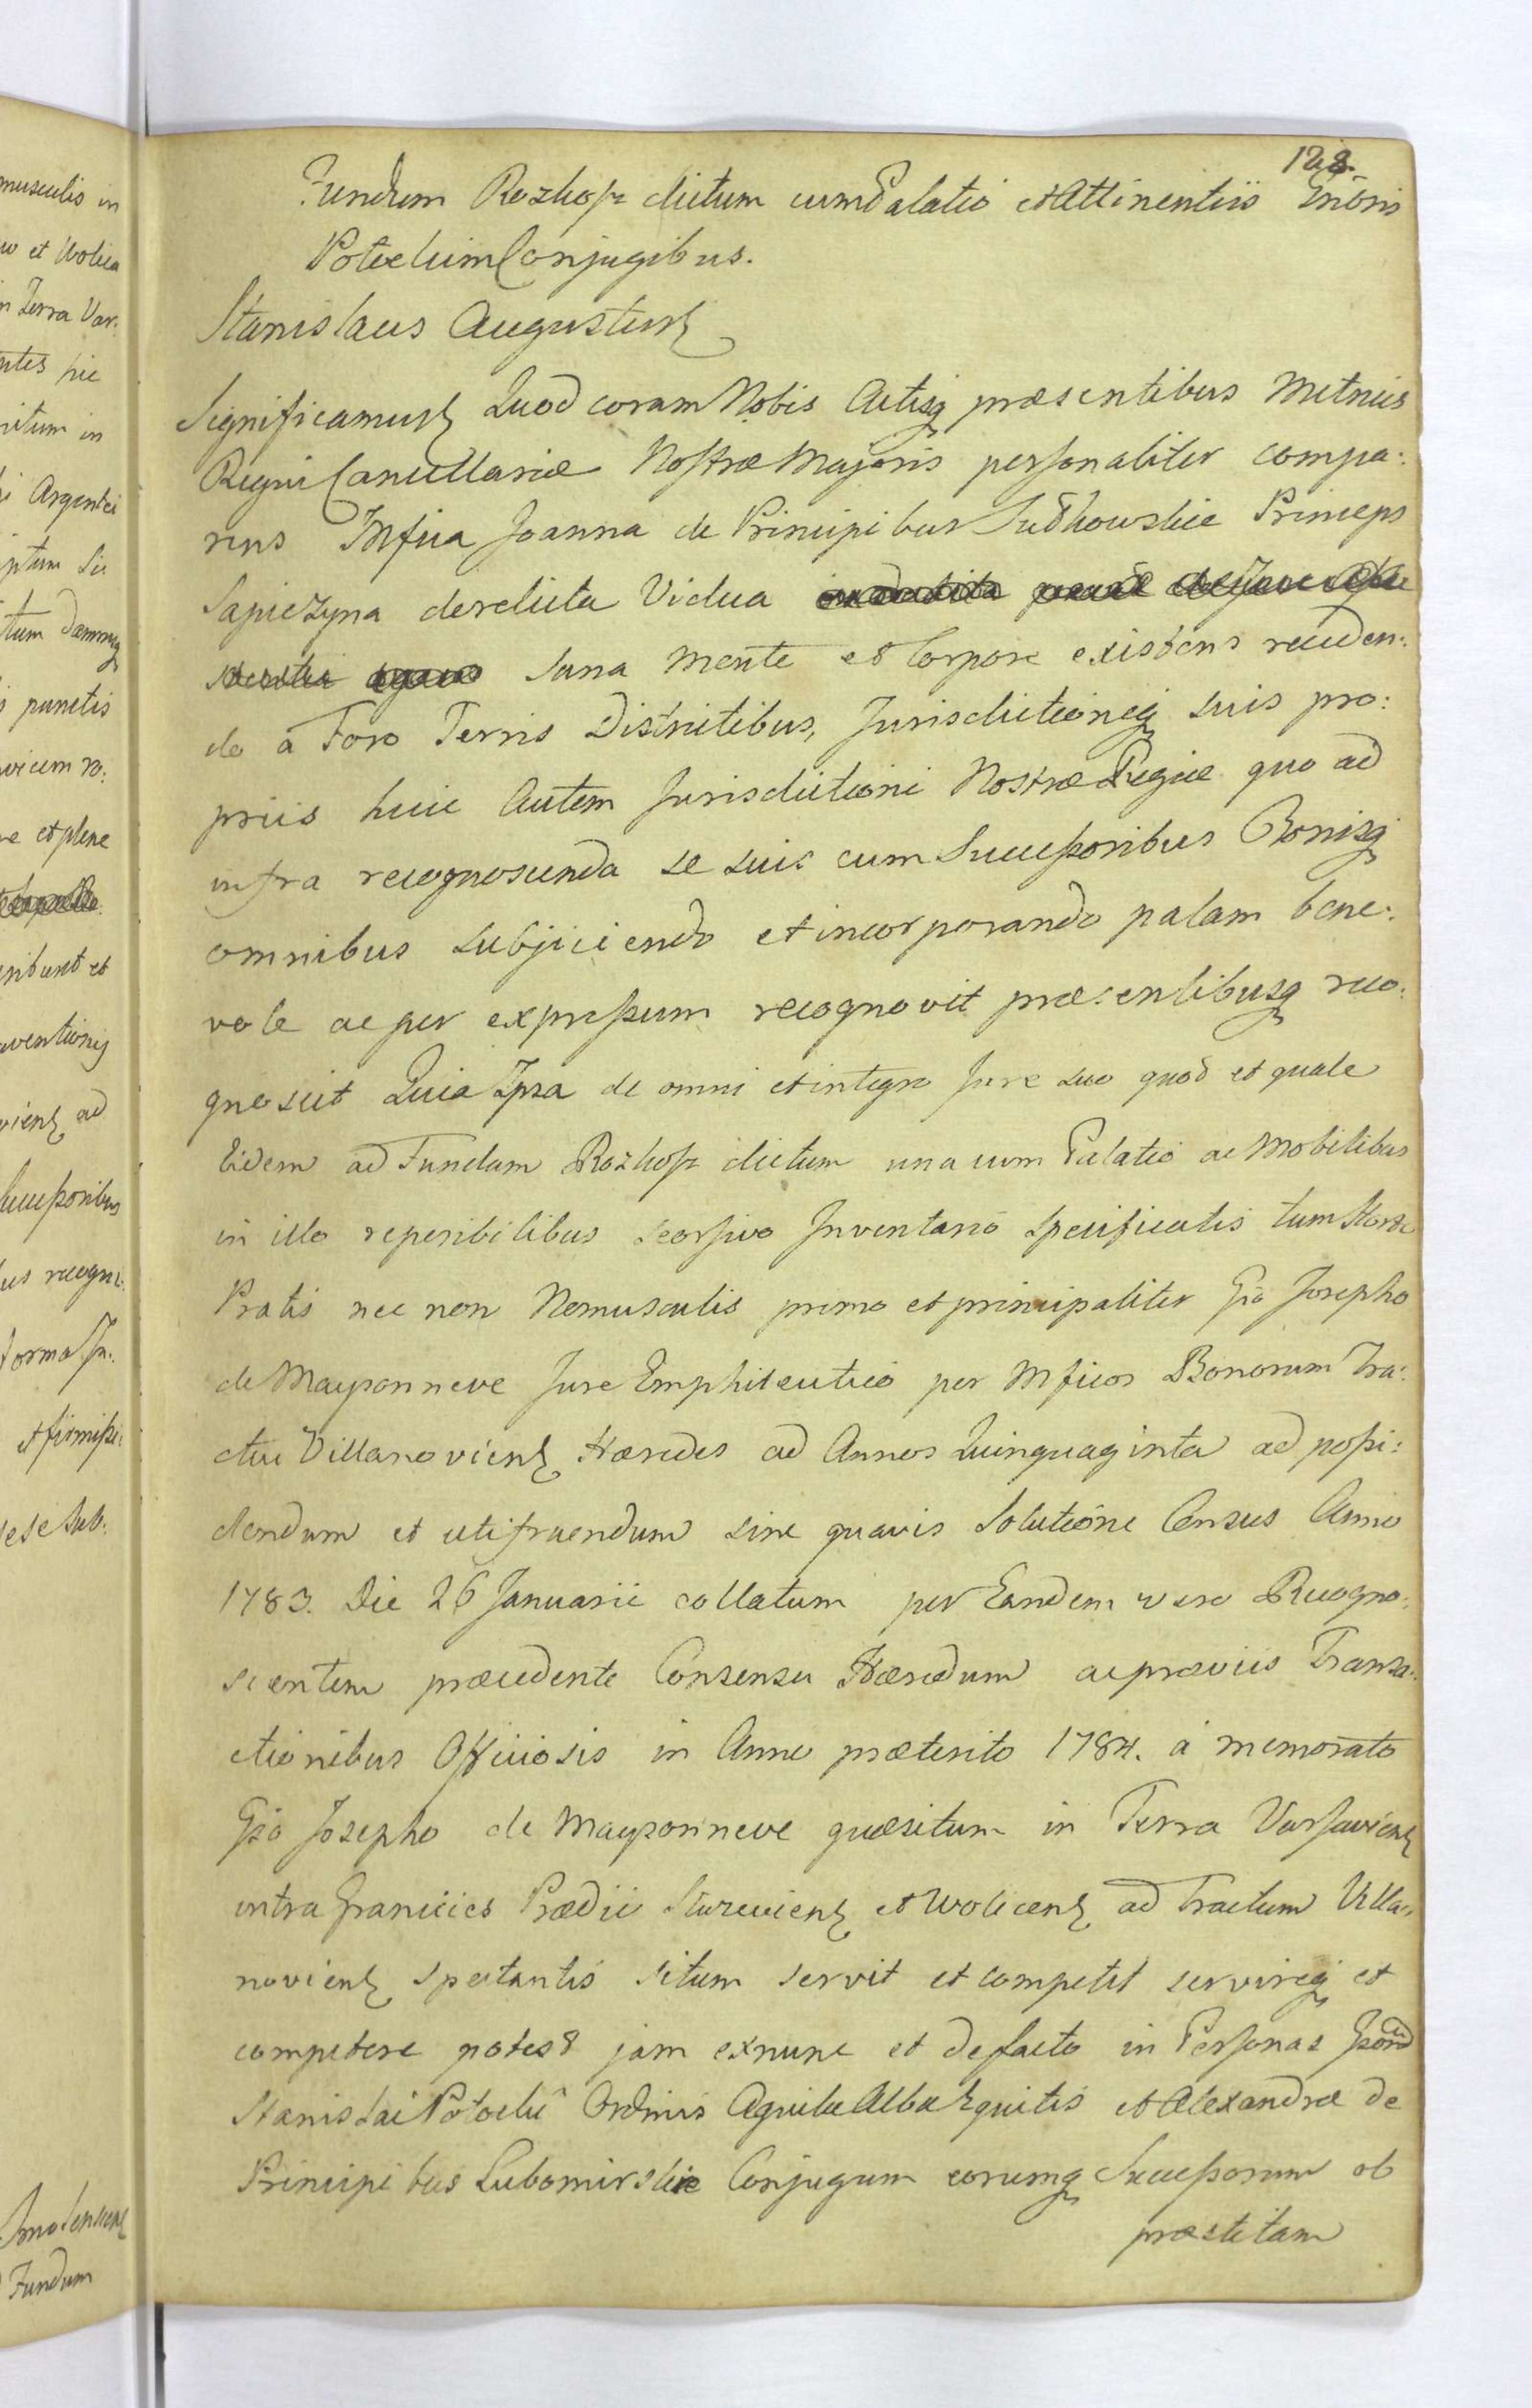 128.
Fundum Rozkosz dictum cum Palatio et Attinentiis Gnōris
Potockim Conjugibus.
Stanislaus Augustus
Significamus Quod coram Nobis Actisq praesentibus Metrices
Regni Cancellariae Nostrae Majoris personaliter compa:
rens Mfica Joanna de Principibus Sułkowskie Princeps
Sapiezyna derelicta Vidua
sana mente et Corpore existens receden:
do a Foro Terris Districtibus, Jurisdictioneq suis pro:
priis huic Autem Jurisdictioni Nostrae Regiae quo ad
infra recognoscenda se suis cum Successoribus Bonisq
omnibus subjiciendo et incorporando palam bene:
vole ac per expressum recognovit praesentibusq reco:
gnoscit Quia Ipsa de omni et integro Jure suo quod et quale
Eidem ad Fundum Rozkosz dictum una cum Palatio ac Mobilibus
in illo reperibilibus seorsivo Inventario specificatis tum Horto
Pratis nec non Nemusculis primo et principaliter Gso Josepho
de Maysonneve Jure Emphiteutico per Mficos Bonorum Tra:
ctus Villanoviens Haeredes ad Annos Quinquaginta ad possi:
dendum et utifruendum sine quavis Solutione Census Anno
1783. Die 26 Januarii collatum per Eandem vero Recogno:
scentem praecedente Consensu Haeredum ac praeviis Transa:
ctionibus Officiosis in Anno praeterito 1784. a memorato
Gso Josepho de Maysonneve quaesitum in Terra Varsaviens
intra Granicies Praedii Szureciens et Wolicens ad Tractum Villa:
noviens spectantis situm servit et competit servireq et
competere potest jam exnunc et defacto in Personas Gsord
Stanislai Potocki Ordinis Aquilae Albae Equitis et Alexandrae de
Principibus Lubomirskie Conjugum eorumq Successorum ob
praestitam
musculis in
w et Wolica
n Terra Var:
ntes hic
situm in
Argentei
ptum
tum
punctis
vicem
e et plene
ribunt et
ventionis
viens ad
Successoribus
us recogni:
forma Ju:
et firmisse
sese sub:
Smolensciens
Fundum